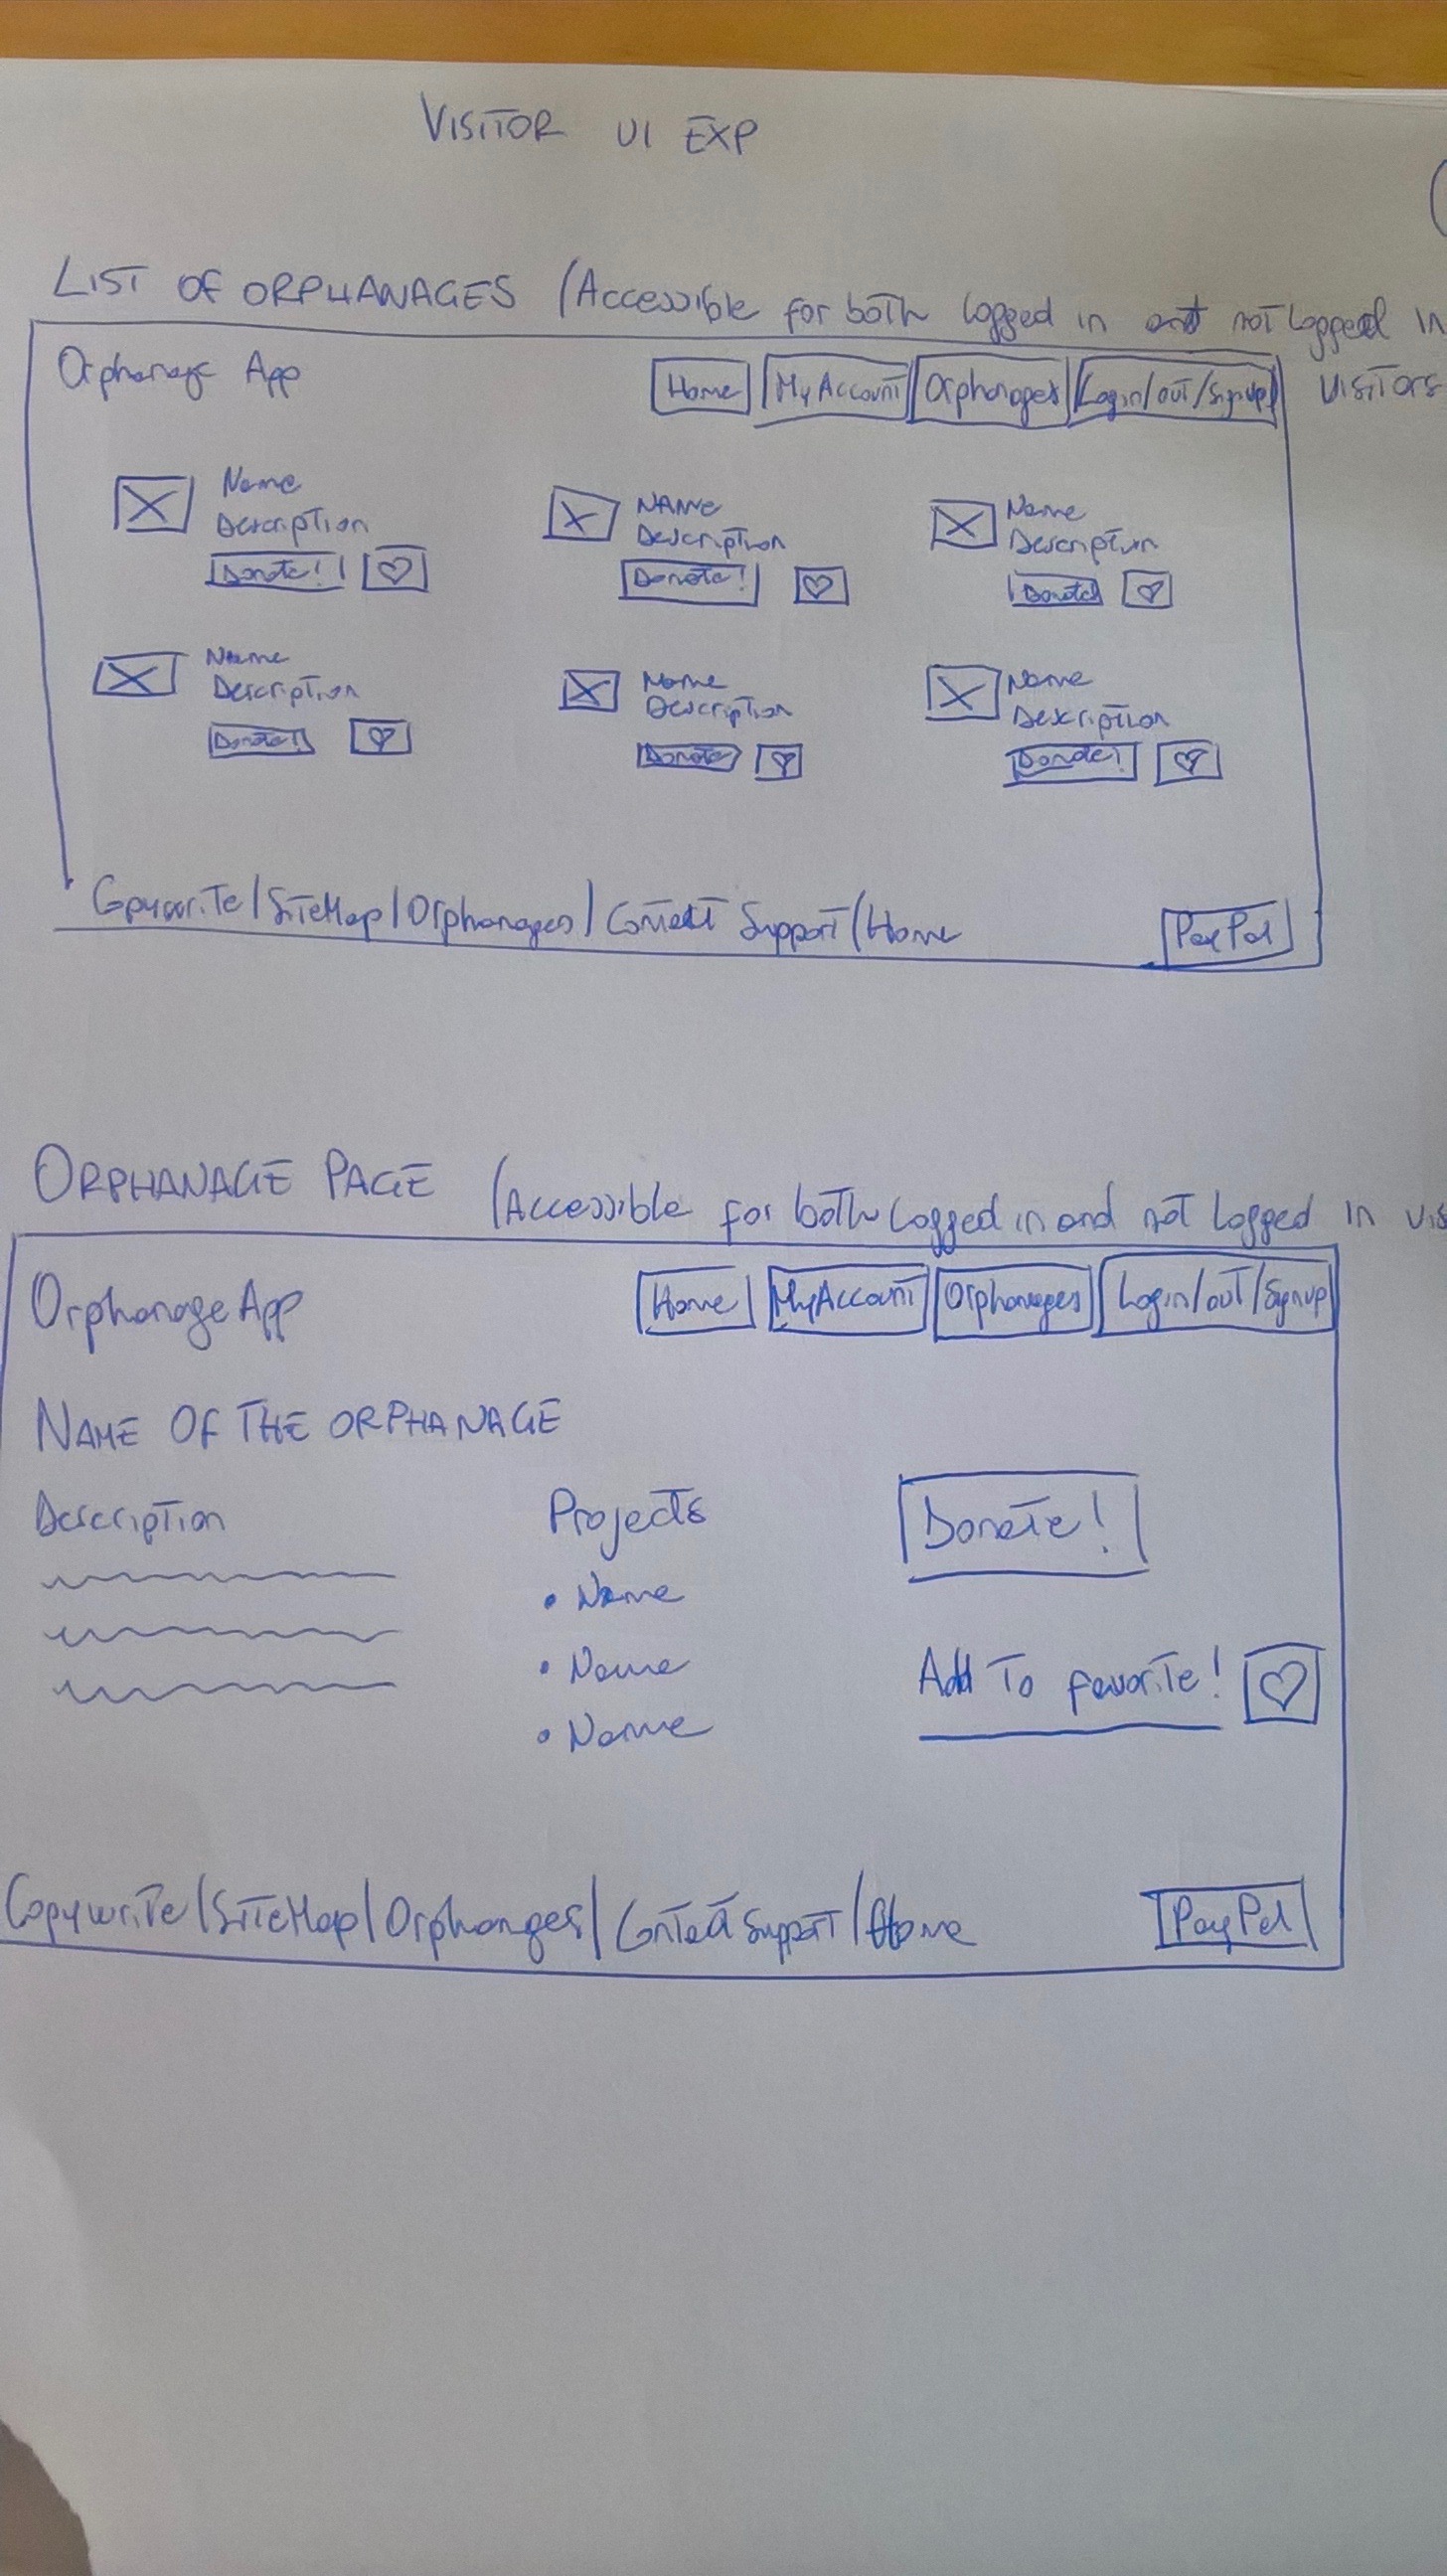 VISITOR UI EXP
LIST OF ORPHANAGES (Accessible for both logged in and not logged in
visitors
Orphanage App Home My Account Orphanages Login/out/Signup
Name NAME Name
Description Description Description
Donate! Donate! Donate!
Name Name Name
Description Description Description
Donate! Donate! Donate!
Copywrite|SiteMap|Orphanages|Contact Support|Home PayPal
ORPHANAGE PAGE (Accessible for both logged in and not logged in vis
OrphanageApp Home MyAccount Orphanages Login/out/Signup
NAME OF THE ORPHANAGE
Description Projects Donate!
• Name
• Name Add To favorite!
• Name
Copywrite|SiteMap|Orphanges|Contact Support|Home PayPal